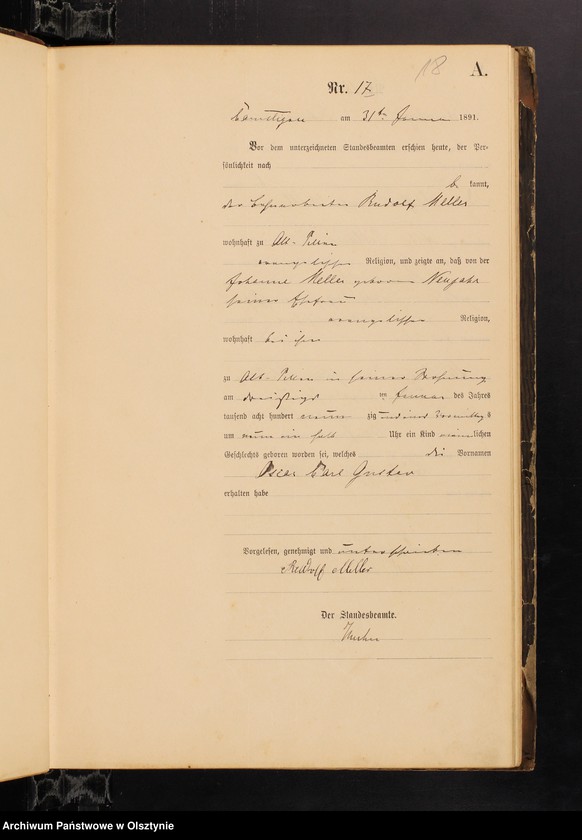 18
A.
Nr. 17
am 31ten Januar 1891.
Vor dem unterzeichneten Standesbeamten erschien heute, der Per-
sönlichkeit nach
be kannt,
der Rudolf Meller
wohnhaft zu Alt-
evangelischer Religion, und zeigte an, daß von der
Johanne Meller geborene Neujahr
seiner Ehefrau
evangelischer Religion,
wohnhaft bei ihm
zu Alt- in seiner Wohnung
am dreißigsten Januar des Jahres
tausend acht hundert neun zig und eins Vormittags
um neun ein halb Uhr ein Kind männlichen
Geschlechts geboren worden sei, welches die Vornamen
Oscar Carl Gustav
erhalten habe
Vorgelesen, genehmigt und unterschrieben
Rudolf Meller
Der Standesbeamte.
Archiwum Państwowe w Olsztynie